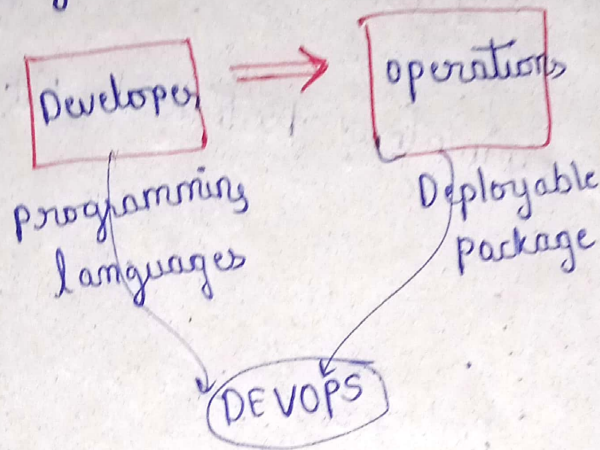 Developer
operations
programming
languages
Deployable
package
DEVOPS